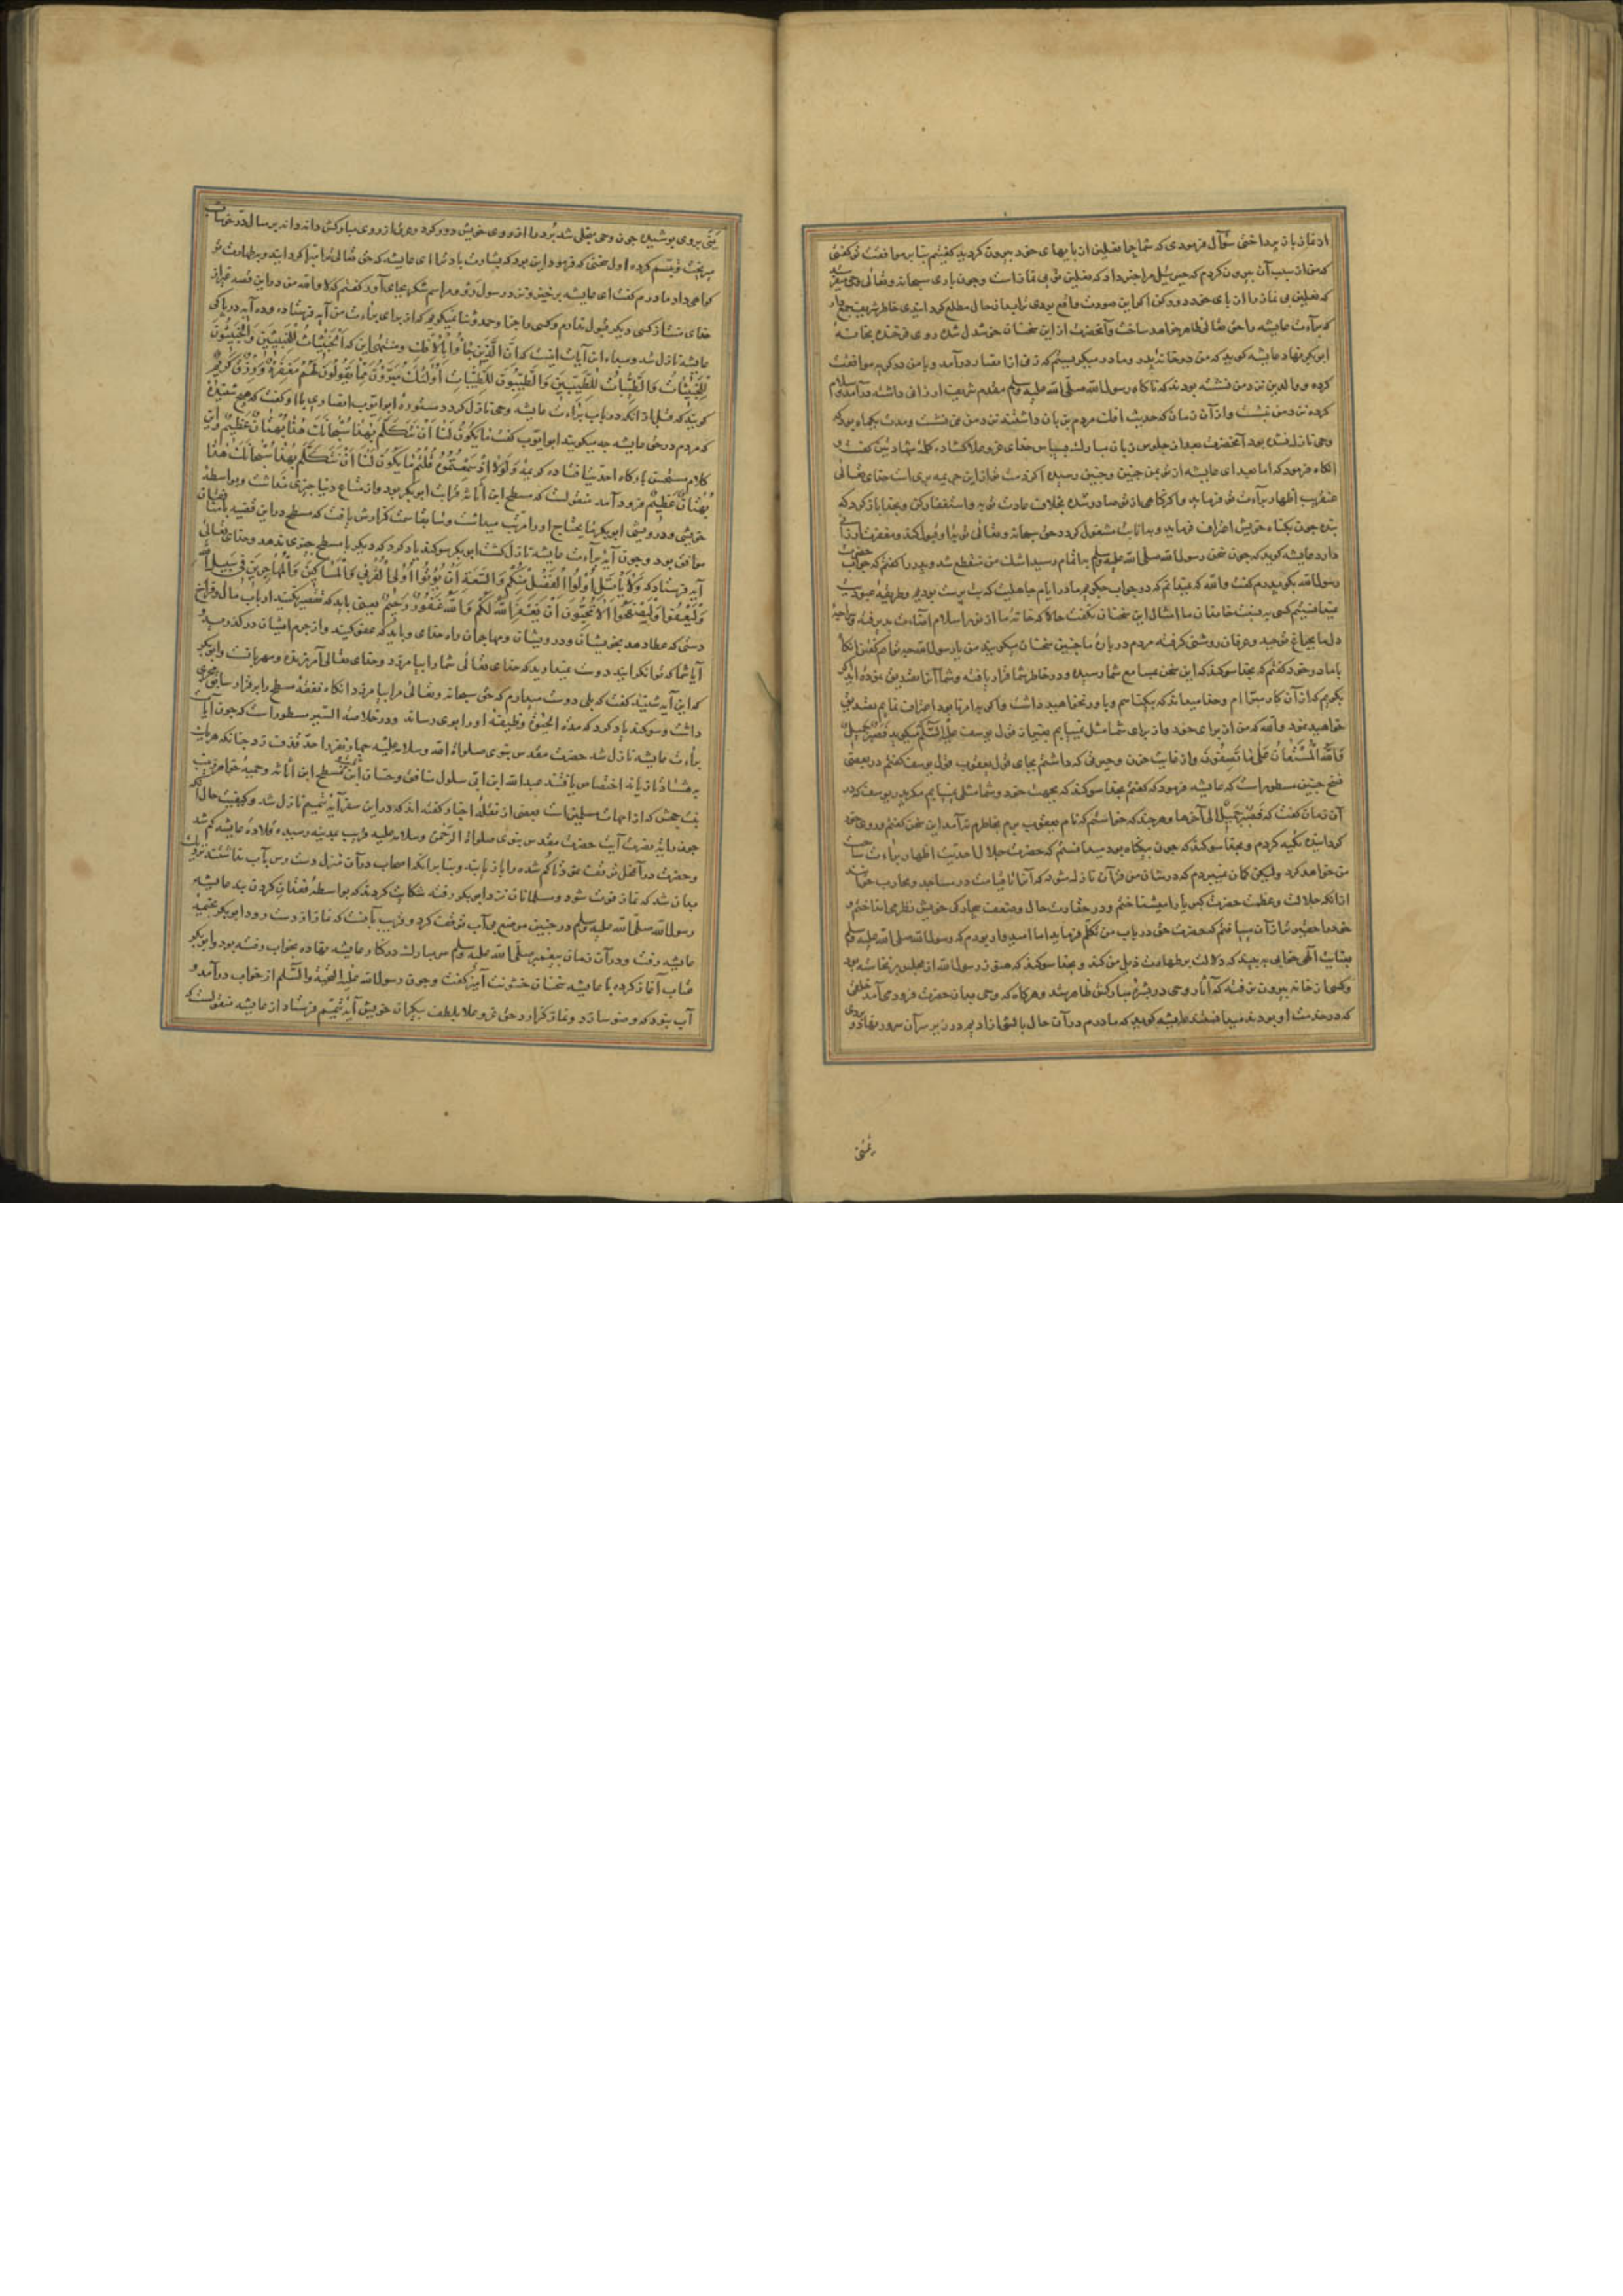 از نماز باز پرداختی سؤال فرمودی که شما چرا نعلین از پایهای خود بیرون کردید گفتیم بنابر موافقت تو گفتی
که من از سبب آن بیرون کردم که جبرئیل مرا خبر داد که نعلین تو بی نماز است و چون باری سبحانه و تعالی وحی
که نعلین بی نماز را از پای خود دور کن اگر این صورت واقع بودی ترا بدان حال مطلع کردانیدی خاطر شریف جمع دار
که برآءت عایشه را حق تعالی ظاهر خواهد ساخت و آنحضرت از این سخنان خوشدل شده روی فرخنده بخانهٔ
ابی بکر نهاد عایشه کوید که من در خانهٔ پدر و مادر میکریستم که زنی از انصار در آمد و با من در کریه موافقت
کرده و والدین نزد من نشسته بودند که ناکاه رسول الله صلّی الله علیه وسلم مقدم شریف ارزانی داشته در آمد و سلام
کرده نزد من نشست و از آن زمان که حدیث افک مردم بر زبان داشتند نزد من نمی نشست و مدت یکماه بود که
وحی نازل نشده بود آنحضرت بعد از جلوس زبان مبارک بسپاس خدای عزو علا کشاده کلمهٔ شهادتین گفت و
آنکاه فرمود که اما بعد ای عایشه از تو بمن چنین و چنین رسیده اکر ذمت تو از این جریمه بری است خدای تعالی
عنقریب اظهار برآءت تو فرماید و اکر کناهی از تو صادر شده بخلاف عادت توبه و استغفار کن و بخدا باز کرد که
بنده چون بکناه خویش اعتراف نماید و بانابت مشغول کردد حق سبحانه و تعالی توبهٔ او قبول کند و مغفرت ارزانی
دارد عایشه کوید که چون سخن رسول الله صلی الله علیه وسلم باتمام رسید اشک من منقطع شد و پدر را کفتم که جواب حضرت
رسول الله بکو پدرم کفت والله که نمیدانم که در جواب چکویم ما در ایام جاهلیت که بت پرست بودیم و طریقهٔ عبودیت
نمیدانستیم کسی به نسبت خاندان ما امثال این سخنان نکفت حالا که خانهٔ ما از نور اسلام اضاءت پذیرفته و
دل ما بچراغ توحید و عرفان روشنی کرفته مردم در بارهٔ ما چنین سخنان میکویند من با رسول الله چه توانم کفتن آنکاه
با مادر خود کفتم که بخدا سوکند که این سخن بمسامع شما رسیده و در خاطر شما قرار یافته و شما آنرا تصدیق نموده اید اکر
بکویم که از آن کار مبرّا ام و خدا میداند که بیکناهم و باور نخواهید داشت و اکر بدامرنابود اعتراف نمایم تصدیق
خواهید نمود والله که من از برای خود و از برای شما مثل نمییابم بغیر از قول یوسف علیه السّلم میکوید فَصَبْرٌ جَمِیلٌ
وَاللّٰهُ الْمُسْتَعَانُ عَلٰی مَا تَصِفُونَ و از غایت حزن و حیرتی که داشتم بجای قول یعقوب قول یوسف کفتم در بعضی
نسخ چنین مسطور است که عایشه فرمود که کفتم بخدا سوکند که بجهت خود و شما مثلی نمییابم مکر پدر یوسف که در
آن زمان کفت که فَصَبْرٌ جَمِیلٌ الی آخرها و هر چند که خواستم که نام یعقوب برم بخاطرم نیامد این سخن کفتم و روی خود
کردانیده تکیه کردم و بخدا سوکند که چون بیکناه بودم میدانستم که حضرت جلال احدیت اظهار برآءت ساحت
من خواهد کرد ولیکن کمان نمیبردم که در شان من قرآن نازل شود که آنرا تا قیامت در مساجد و محاریب خوانند
از آنکه جلالت و عظمت حضرت کبریا را میشناختم و در حقارت حال و ضعف بیچارکی خویش نظر می انداختم و
خود را حقیرتر از آن مییافتم که حضرت حق در باب من تکلّم فرماید اما امیدوار بودم که رسول الله صلی الله علیه وسلم
بعنایت آلهی خوابی بیند که دلالت بر طهارت ذیل من کند و بخدا سوکند که هنوز رسول الله از مجلس برنخاسته بود
و کسی از خانه بیرون نرفته که آثار وحی در بشرهٔ مبارکش ظاهر شد و هرکاه که وحی بدان حضرت فرود می آمد خلقی
که در خدمت او بودند میدانستند عایشه کوید که مادرم در آن حال بالشی از ادیم در زیر سر آن سرور نهاد و بردی
یَمَنی
یَمَنی بر وی پوشید چون وحی منجلی شد بُرد را از روی خویش دور کرد و عرق از روی مبارکش دانه دانه بر مثال در خوشاب
میریخت تبسم کرده اول سخنی که فرمود این بود که بشارت باد ترا ای عایشه که حق تعالی ترا مبرا کردانید و بر طهارت تو
کواهی داد مادرم کفت ای عایشه برخیز و نزد رسول رو و مراسم شکر بجای آور کفتم که لا والله من در این قصه بجز از
خدای منّت از کسی دیکر قبول ندارم و کسی را جز او حمد و ثنا نمیکویم که از برای برآءت من آیه فرستاده و ده آیه در پاکی
عایشه نازل شد و مبداء این آیات اینست که اِنَّ الَّذِینَ جَاؤُا بِالْاِفْکِ و منتهی این که اَلْخَبِیثَاتُ لِلْخَبِیثِینَ وَالْخَبِیثُونَ
لِلْخَبِیثَاتِ وَالطَّیِّبَاتُ لِلطَّیِّبِینَ وَالطَّیِّبُونَ لِلطَّیِّبَاتِ اُولٰئِکَ مُبَرَّؤُنَ مِمَّا یَقُولُونَ لَهُمْ مَغْفِرَةٌ وَرِزْقٌ کَرِیمٌ
کویند که قبل از آنکه در باب برآءت عایشه وحی نازل کردد ستودهٔ ابو ایّوب انصاری با او کفت که هیچ شنیدهٔ
که مردم در حق عایشه چه میکویند ابو ایّوب کفت مَا یَکُونُ لَنَا اَنْ نَتَکَلَّمَ بِهٰذَا سُبْحَانَکَ هٰذَا بُهْتَانٌ عَظِیمٌ و این
کلام مستحسن بارکاه احدیت افتاده کریمهٔ وَلَوْلَا اِذْ سَمِعْتُمُوهُ قُلْتُمْ مَا یَکُونُ لَنَا اَنْ نَتَکَلَّمَ بِهٰذَا سُبْحَانَکَ هٰذَا
بُهْتَانٌ عَظِیمٌ فرود آمد منقولست که مسطح ابن اثاثه قرابت ابو بکر بود و از متاع دنیا چیزی نداشت و بواسطهٔ
خویشی و درویشی ابو بکر مایحتاج او را مرتّب میداشت و سابقا سمت کزارش یافت که مسطح در این قضیه با منافقان
موافق بود و چون آیهٔ برآءت عایشه نازل کشت ابو بکر سوکند یاد کرد که دیکر با مسطح چیزی ندهد و خدای تعالی
آیه فرستاد که وَلَا یَاْتَلِ اُولُوا الْفَضْلِ مِنْکُمْ وَالسَّعَةِ اَنْ یُؤْتُوا اُولِی الْقُرْبٰی وَالْمَسَاکِینَ وَالْمُهَاجِرِینَ فِی سَبِیلِ اللّٰهِ
وَلْیَعْفُوا وَلْیَصْفَحُوا اَلَا تُحِبُّونَ اَنْ یَغْفِرَ اللّٰهُ لَکُمْ وَاللّٰهُ غَفُورٌ رَحِیمٌ یعنی باید که تقصیر نکنند ارباب مال و فراخ
دستی که عطا دهند بخویشان و درویشان و مهاجران راه خدای و باید که عفو کنند و از جرم ایشان در کذرند
آیا شما که توانکرانید دوست نمیدارید که خدای تعالی شما را بیامرزد و خدای تعالی آمرزنده و مهربانست و ابو بکر
که این آیه شنید کفت که بلی دوست میدارم که حق سبحانه و تعالی مرا بیامرزد آنکاه نفقهٔ مسطح را بر قرار سابق مجری
داشت و سوکند یاد کرد که مدة الحیوة وظیفهٔ او را بوی رساند و در خلاصة السّیر مسطور است که چون آیات
برآءت عایشه نازل شد حضرت مقدس نبوی صلواة الله وسلامه علیه چهار نفر را حدّ قذف زد چنانکه هر یک
به هشتاد تازیانه اختصاص یافتند عبدالله ابن ابی سلول منافق و حسان ابن ثابت و مسطح ابن اثاثه و حمنه خواهر زینب
بنت جحش که از امهات مسلمین است بعضی از نقلهٔ اخبار کفته اند که در این سفر آیهٔ تیمّم نازل شد و کیفیت حال آنکه
چون رایة نصرت آیت حضرت مقدس نبوی صلواة الرّحمن وسلامه علیه قریب بمدینه رسید قلادهٔ عایشه کم شد
و حضرت در آن محل توقف نمود تا کم شده را باز یابند و بنابر آنکه اصحاب در آن منزل دست رس بآب نداشتند نزدیک
بدان شد که نماز فوت شود و مسلمانان نزد ابو بکر رفته شکایت کردند که بواسطهٔ فقدان کردن بند عایشه
رسول الله صلّی الله علیه وسلم در چنین موضع بی آب توقف کرد و قریب بآنست که نماز از دست رود ابو بکر بخیمهٔ
عایشه رفت و در آن زمان پیغمبر صلّی الله علیه وسلم سر مبارک در کنار عایشه نهاده بخواب رفته بود و ابو بکر
عتاب آغاز کرده با عایشه سخنان خشونت آمیز کفت و چون رسول الله علیه التّحیّة والسّلم از خواب در آمد و
آب نبود که وضو سازد و نماز کزارد حق عزو علا بلطف بیکران خویش آیهٔ تیمّم فرستاد از عایشه منقولست که